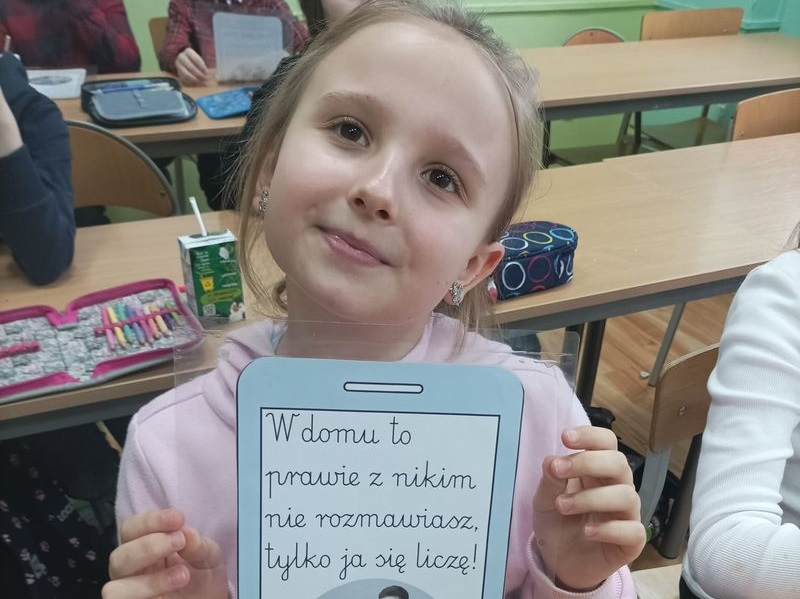 W domu to
prawie z nikim
nie rozmawiasz,
tylko ja się liczę!